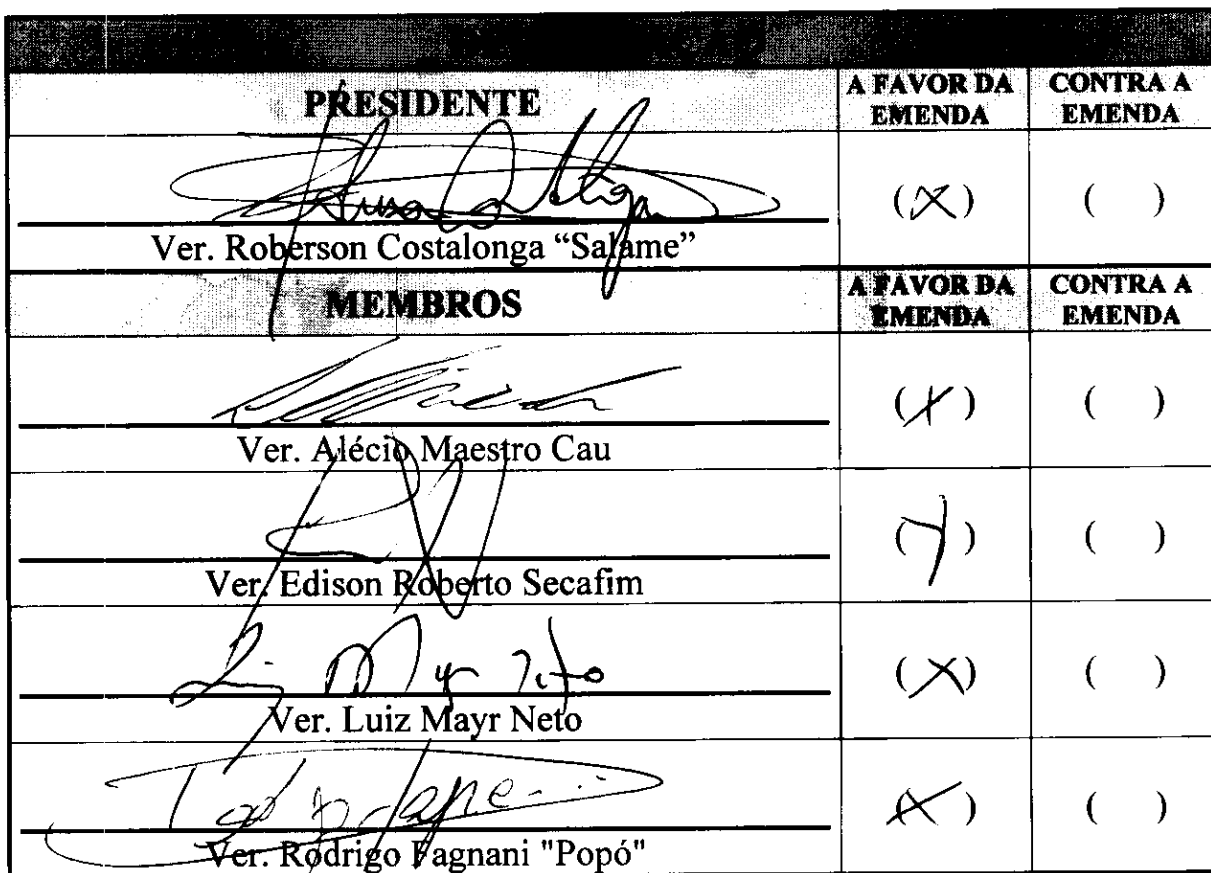 PRESIDENTE A FAVOR DA CONTRA A
EMENDA EMENDA
(X) ( )
Ver. Roberson Costalonga “Salame”
MEMBROS A FAVOR DA CONTRA A
EMENDA EMENDA
(X) ( )
Ver. Alécio Maestro Cau
(X) ( )
Ver. Edison Roberto Secafim
Luiz Mayr Neto (X) ( )
Ver. Luiz Mayr Neto
(X) ( )
Ver. Rodrigo Fagnani "Popó"